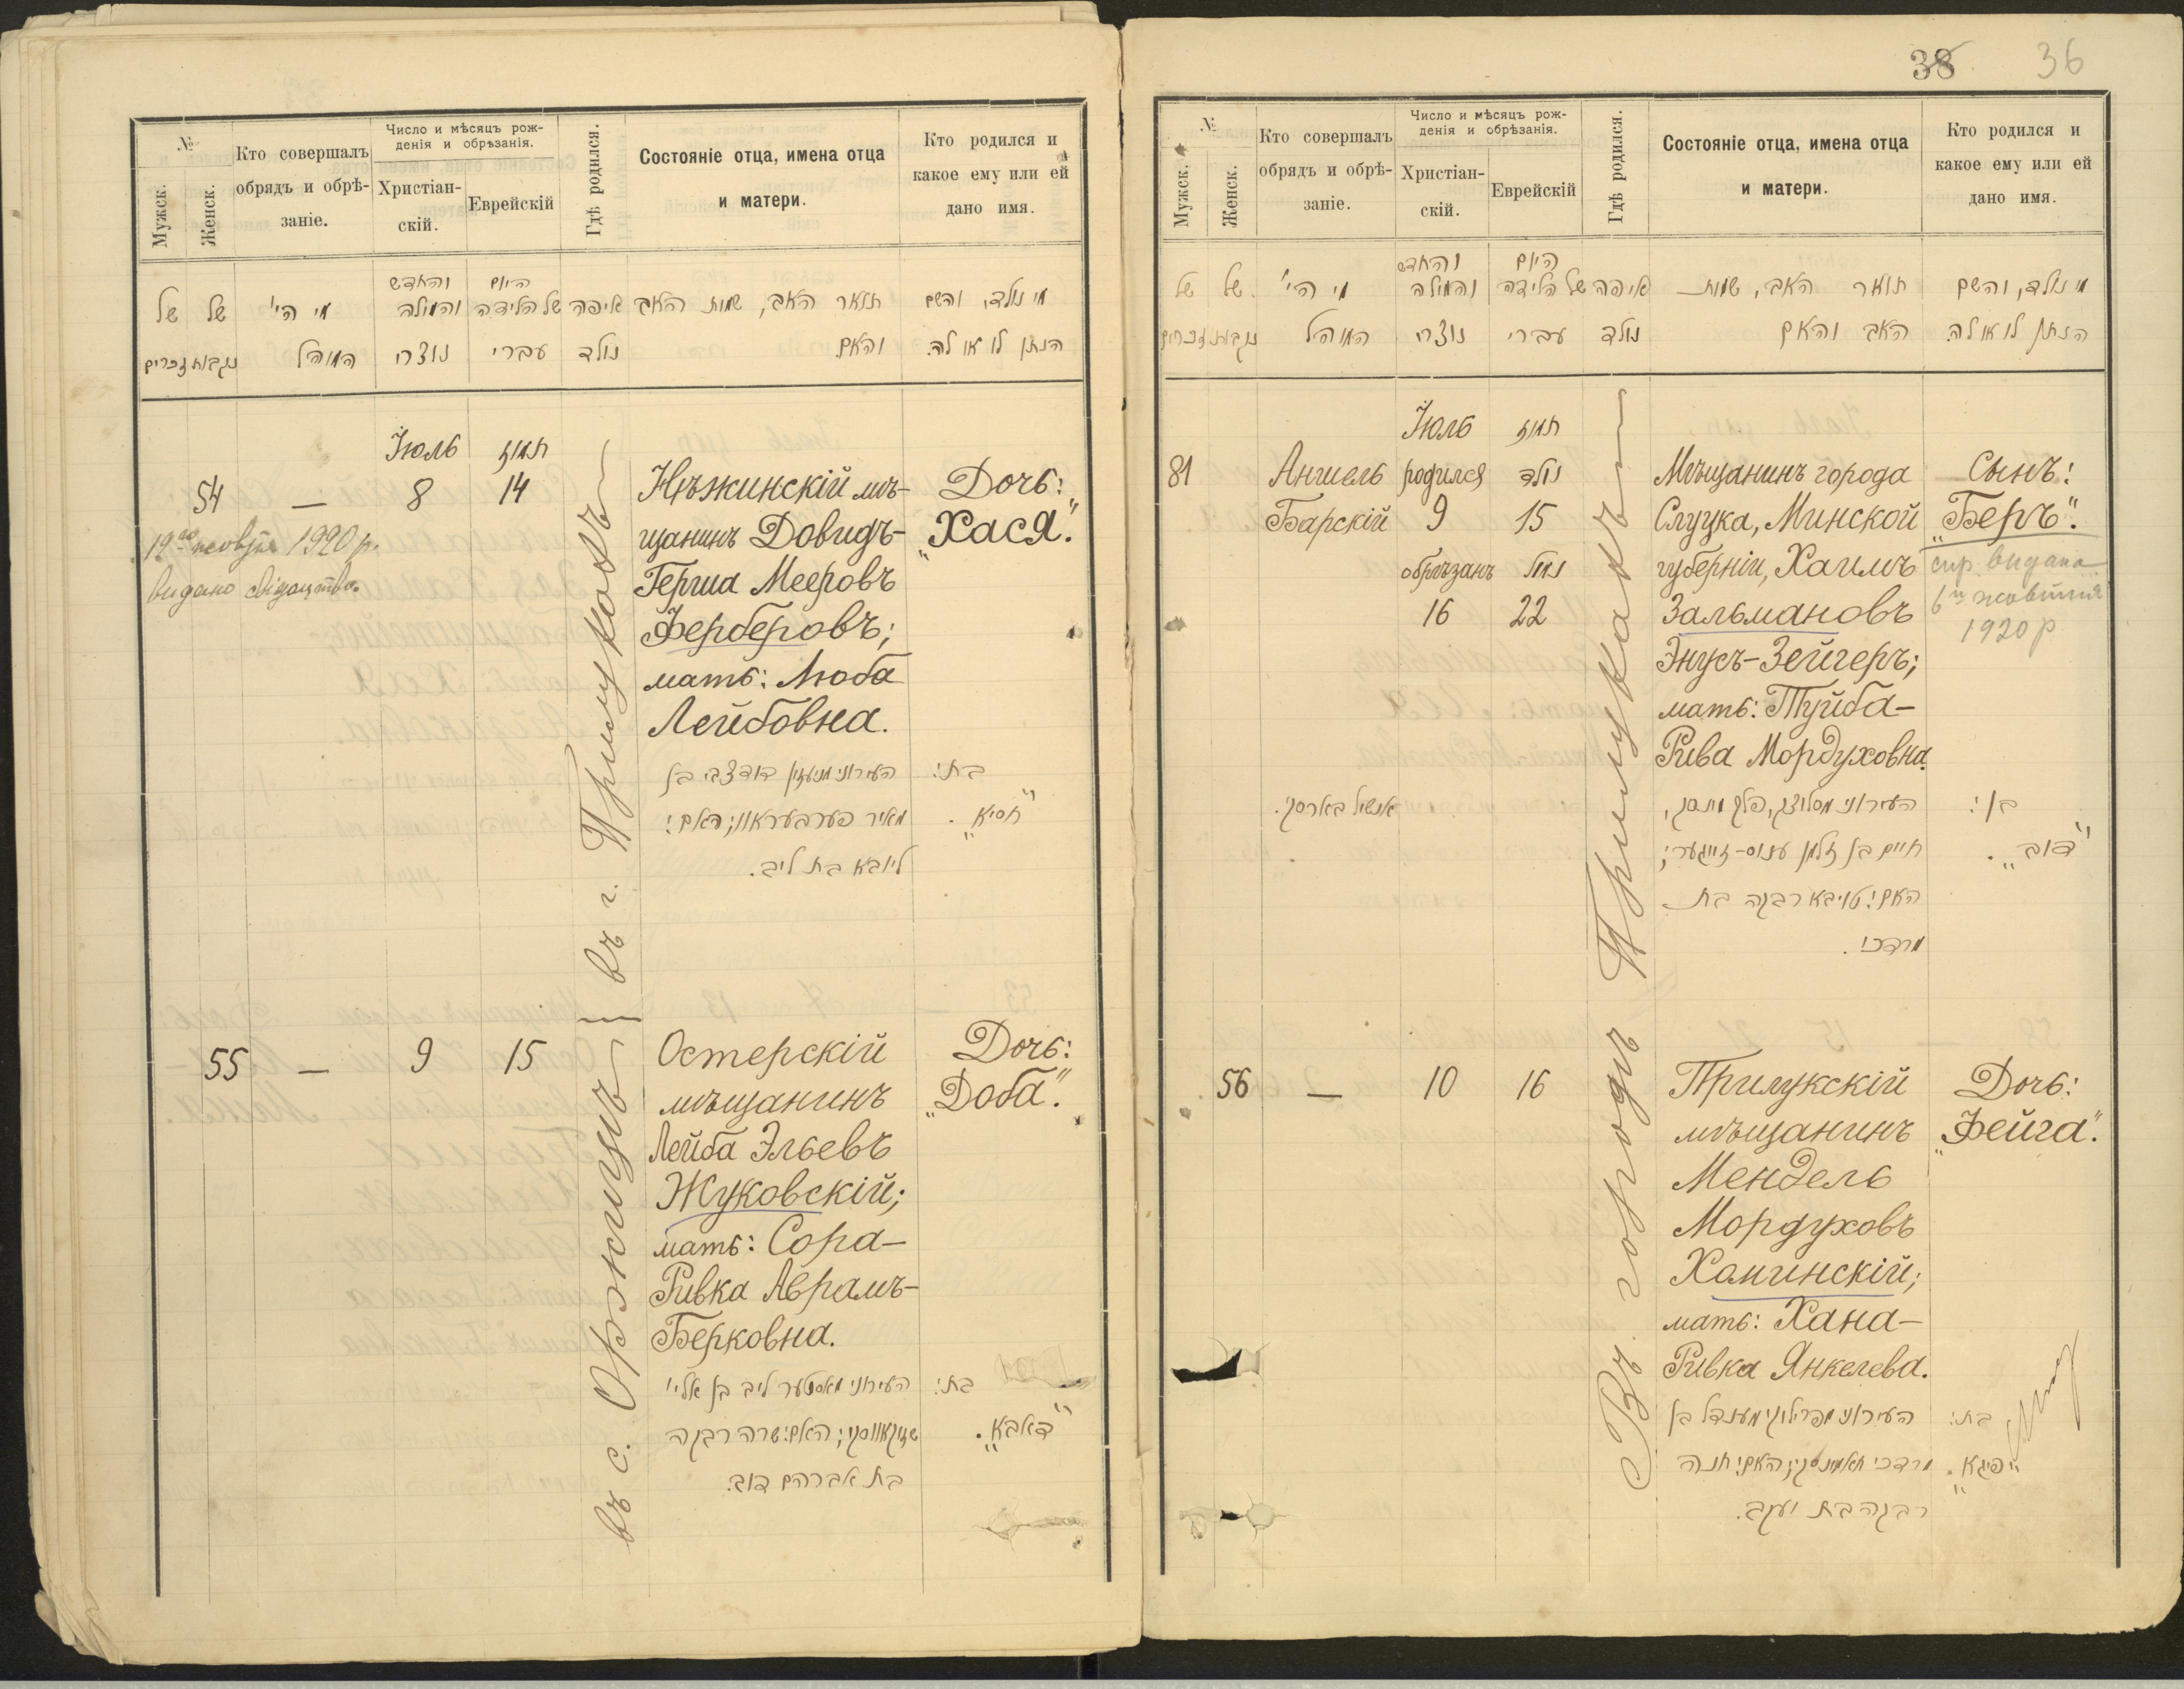 №
Мужск.
Женск.
Кто совершалъ
обрядъ и обрѣ-
заніе.
Число и мѣсяцъ рож-
денія и обрѣзанія.
Христіан-
скій.
Еврейскій
Гдѣ родился.
Состояніе отца, имена отца
и матери.
Кто родился и
какое ему или ей
дано имя.
של של מי הי' והחדש היום
והמילה של הלידה איפה תואר האב, שמות האב מי נולד, והשם
נקבות זכרים המוהל נוצרי עברי נולד והאם הנתן לו או לה.
Іюль תמוז
54 — 8 14
Нѣжинскій мѣ-
щанинъ Довидъ-
Герша Мееровъ
Ферберовъ;
мать: Люба
Лейбовна.
Дочь:
„Хася".
1920 р.
видано свідоцтво.
въ г. Прилукахъ
העירוני מנעזין דוד צבי בן
מאיר פערבעראוו; האם:
ליובא בת ליב.
בת:
"חסיא".
55 — 9 15
Остерскій
мѣщанинъ
Лейба Эльевъ
Жуковскій;
мать: Сора-
Ривка Аврамъ-
Берковна.
Дочь:
„Доба".
въ с. Оржицѣ
העירוני מאסטער ליב בן אלי'
זשוקאווסקי; האם: שרה רבקה
בת אברהם דוב.
בת:
"דאבא".
38 36
№
Мужск.
Женск.
Кто совершалъ
обрядъ и обрѣ-
заніе.
Число и мѣсяцъ рож-
денія и обрѣзанія.
Христіан-
скій.
Еврейскій
Гдѣ родился.
Состояніе отца, имена отца
и матери.
Кто родился и
какое ему или ей
дано имя.
של של מי הי' והחדש היום
והמילה של הלידה איפה תואר האב, שמות מי נולד, והשם
נקבות זכרים המוהל נוצרי עברי נולד האב והאם הנתן לו או לה.
Іюль תמוז
81
Аншель
Барскій
родился נולד
9 15
обрѣзанъ נמול
16 22
Мѣщанинъ города
Слуцка, Минской
губерніи, Хаимъ
Зальмановъ
Энусъ-Зейгеръ;
мать: Туйба-
Рива Мордуховна.
Сынъ:
„Беръ".
видана
6 жовтня
1920 р
Прилукахъ
אנשיל בארסקי.
העירוני מסלוצק, פלך מינסק,
חיים בן זלמן ענוס-זייגער;
האם: טויבא רבקה בת
מרדכי.
בן:
"דוב".
56 — 10 16
Прилукскій
мѣщанинъ
Мендель
Мордуховъ
Хаминскій;
мать: Хана-
Ривка Янкелева.
Дочь:
„Фейга".
Въ городѣ
העירוני מפרילוקי מענדל בן
מרדכי חאמינסקי; האם: חנה
רבקה בת יעקב.
בת:
"פיגא".